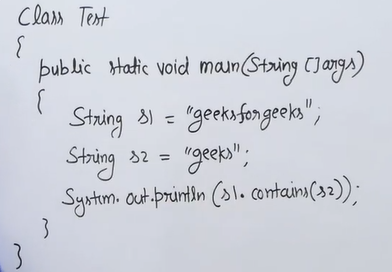 Class Test
{
public static void main(String []args)
{
String s1 = "geeksforgeeks";
String s2 = "geeks";
System.out.println (s1.contains(s2));
}
}